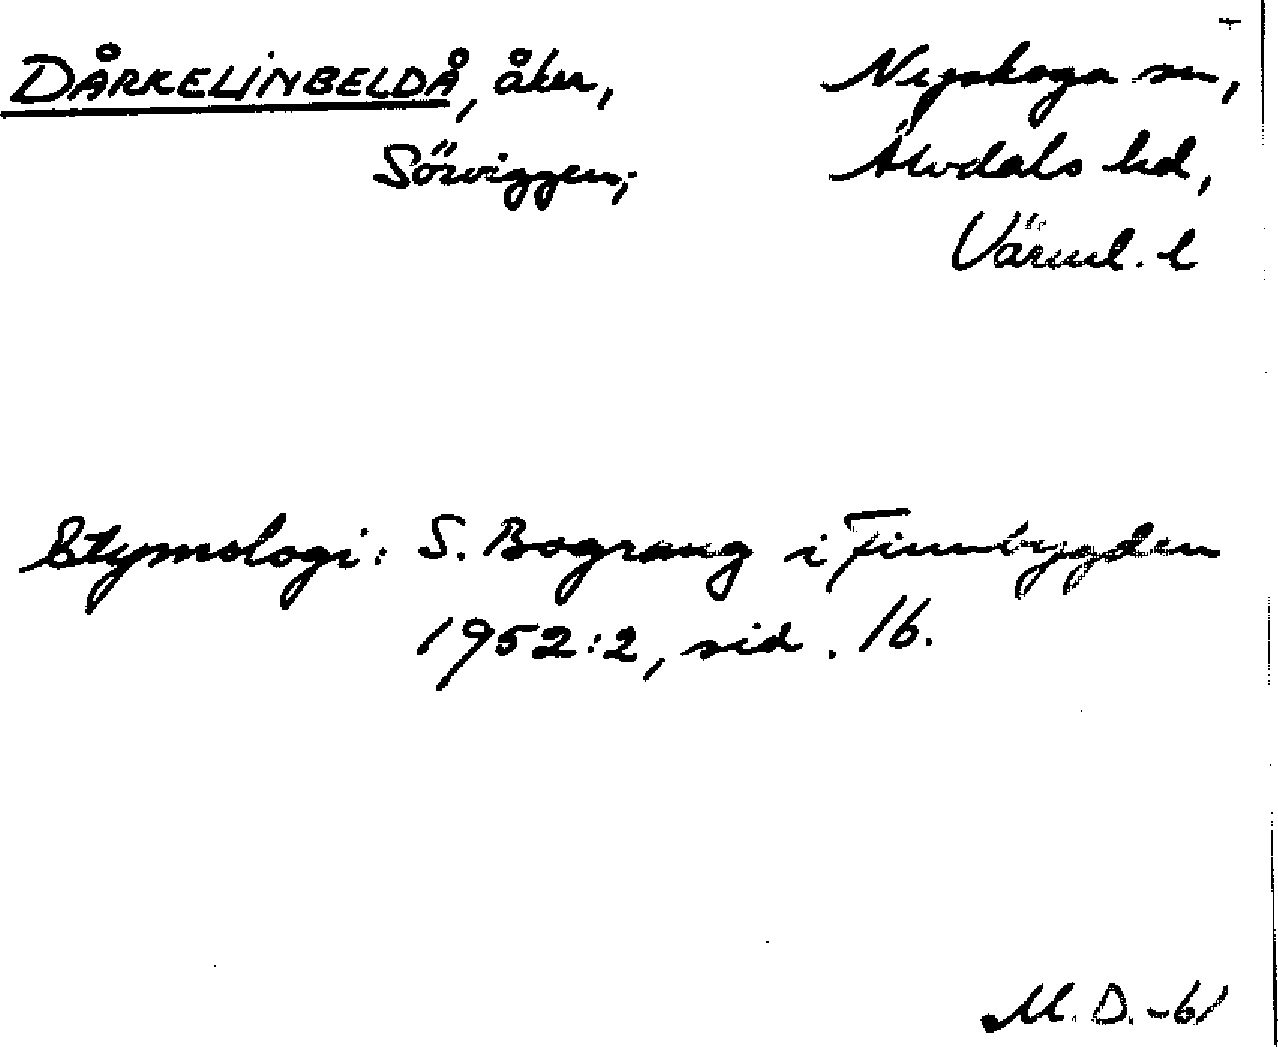 DÅRKELINBELDÅ, åker, Nyskoga sn,
Sörviggen, Älvdals hd,
Värml. l
Etymologi: S. Bograng i Finnbygden
1952:2, sid. 16.
M. D. -61